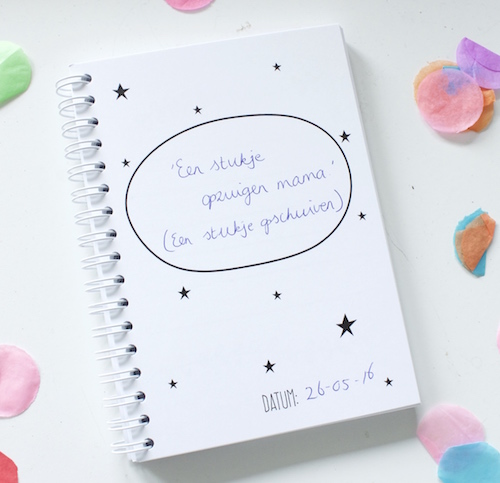 'Een stukje
opzuigen mama'
(Een stukje opschuiven)
DATUM: 26-05-16